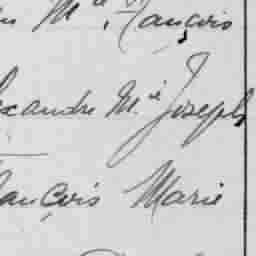 Mie François
exandre Mie Joseph
ançois Marie